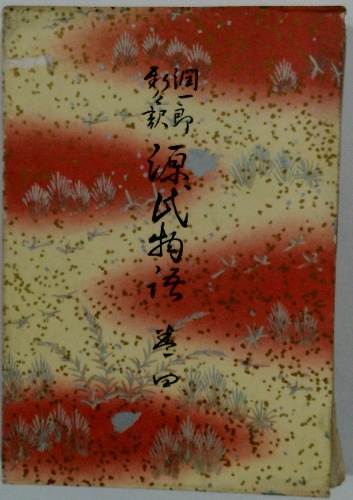 潤一郎
新々訳
源氏物語 巻四